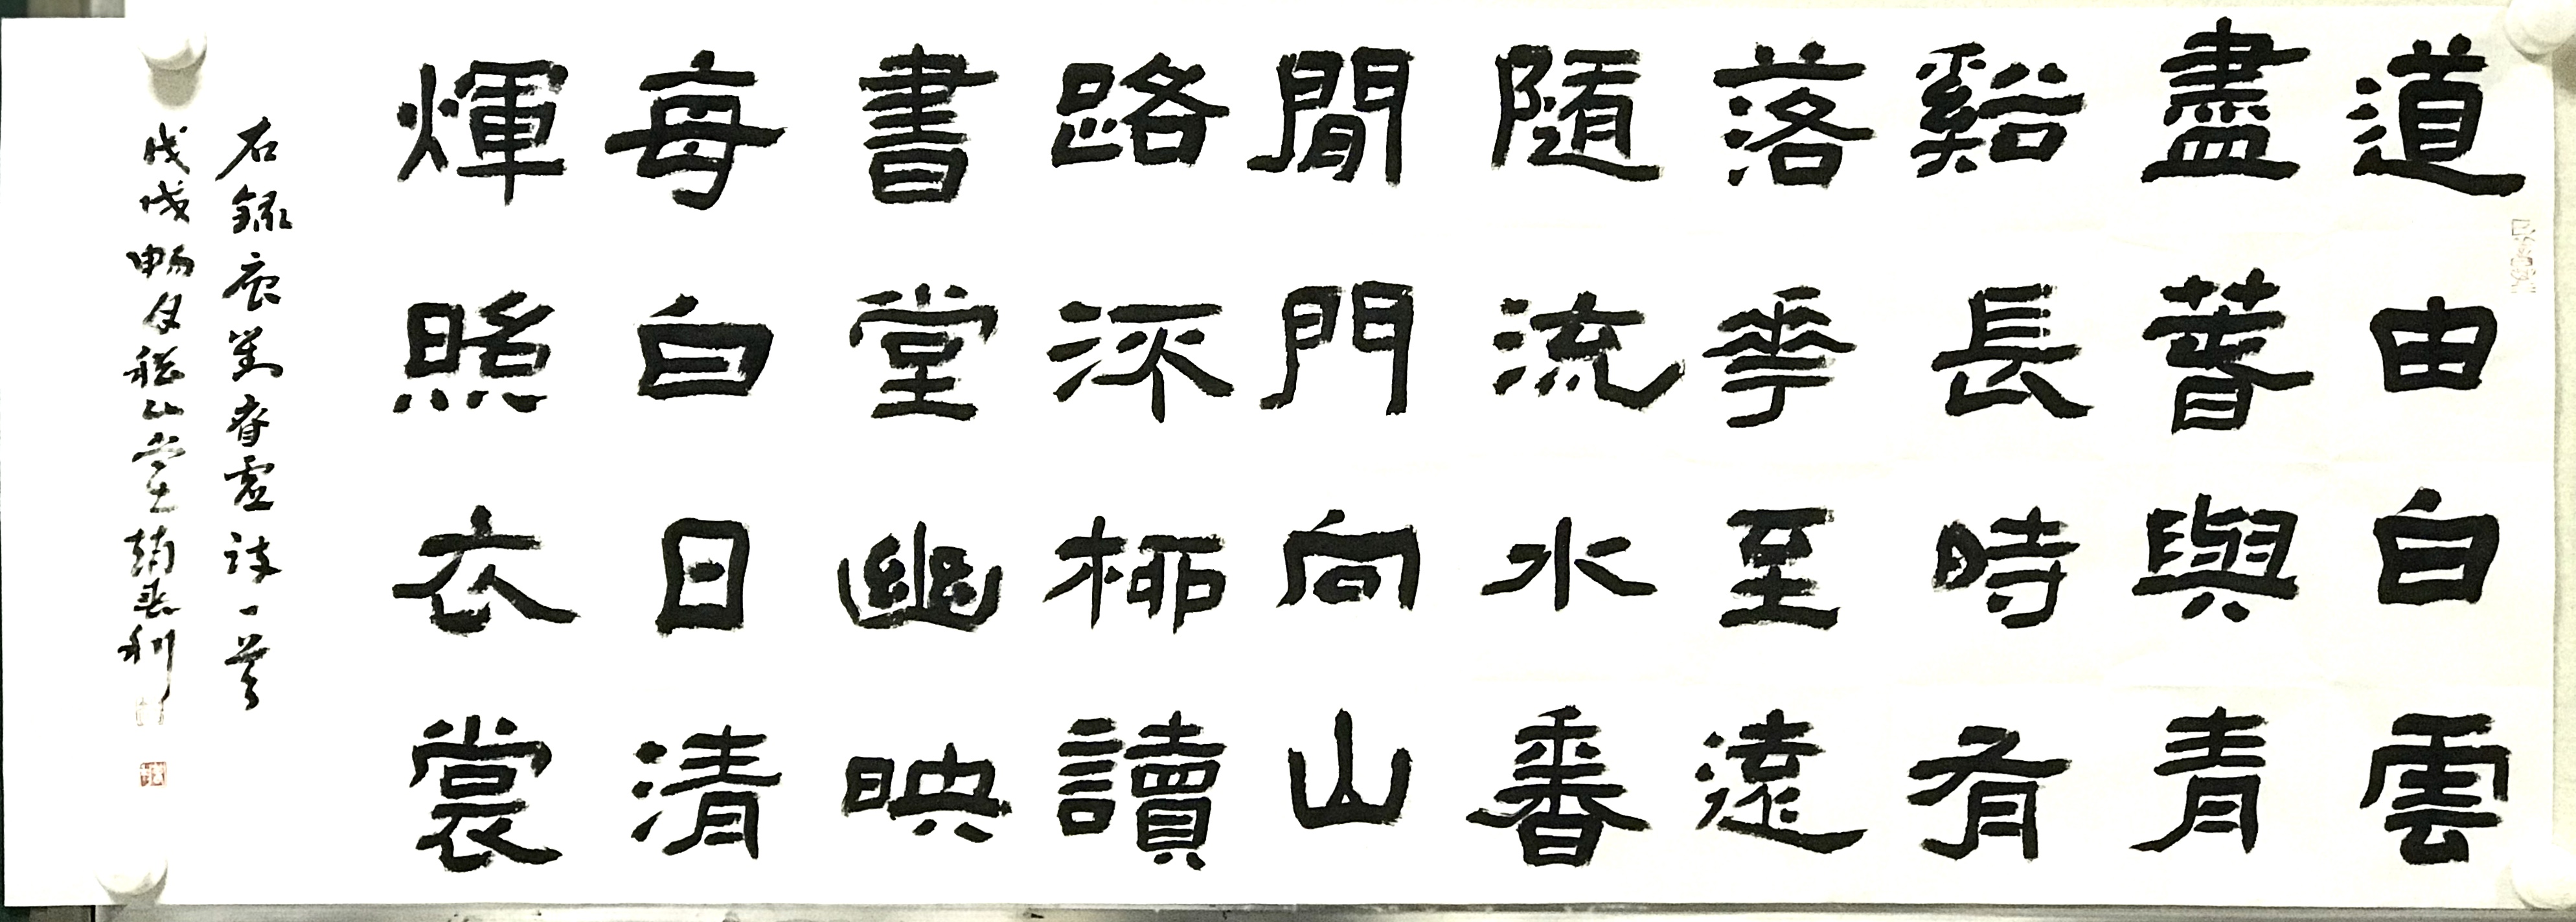 道由白雲
盡暮與青
谿長時有
落華至遠
隨流水香
閒門向山
路深柳讀
書堂幽映
每白日清
輝照衣裳
右錄唐劉眘虛詩一首
戊戌暢月